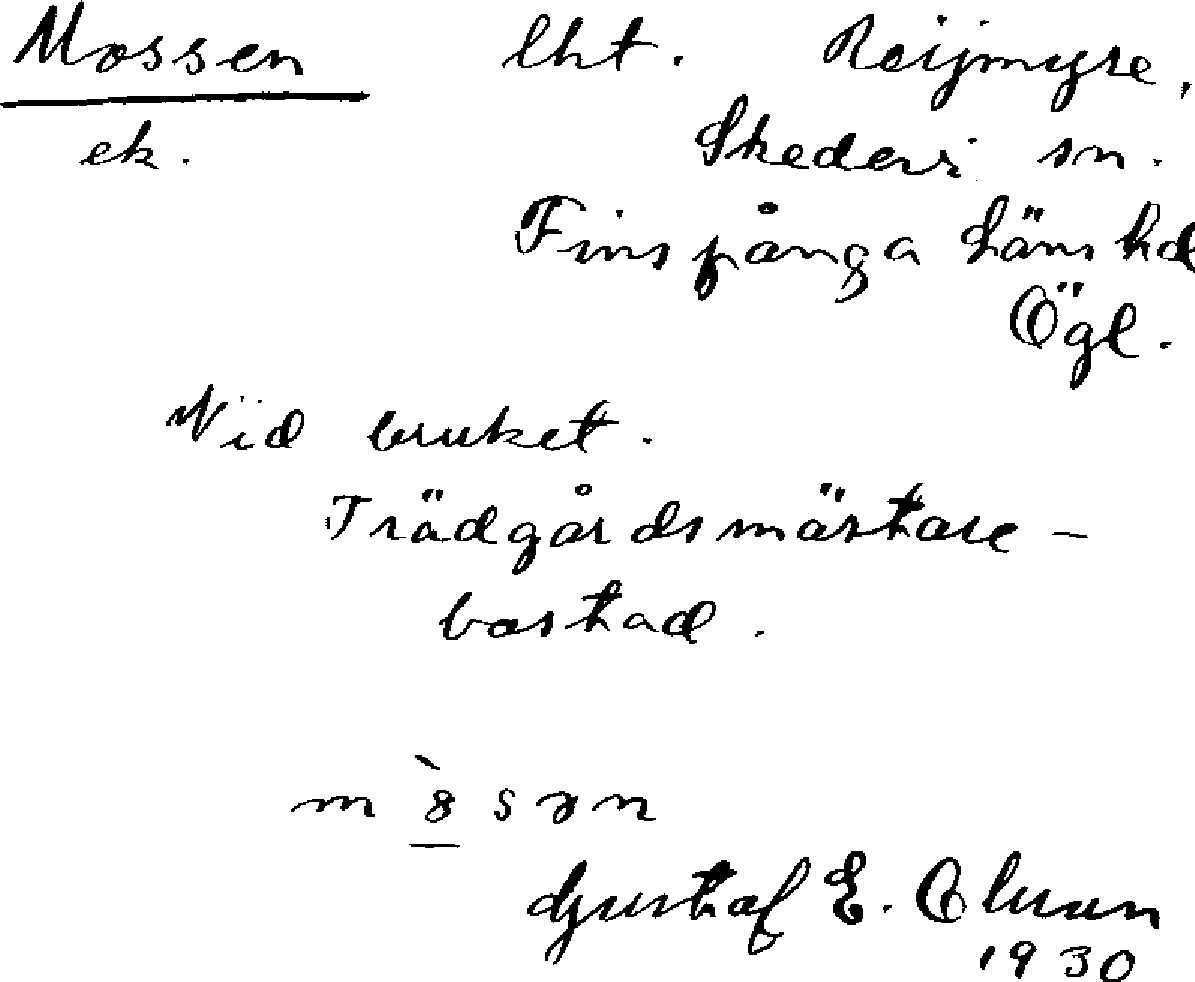 Mossen lht. Reijmyre,
ek. Skedevi sn.
Finspånga Läns hd
Ögl.
Vid bruket.
Trädgårdsmästare-
bostad.
m ò̱ s ə n
Gustaf E.
1930